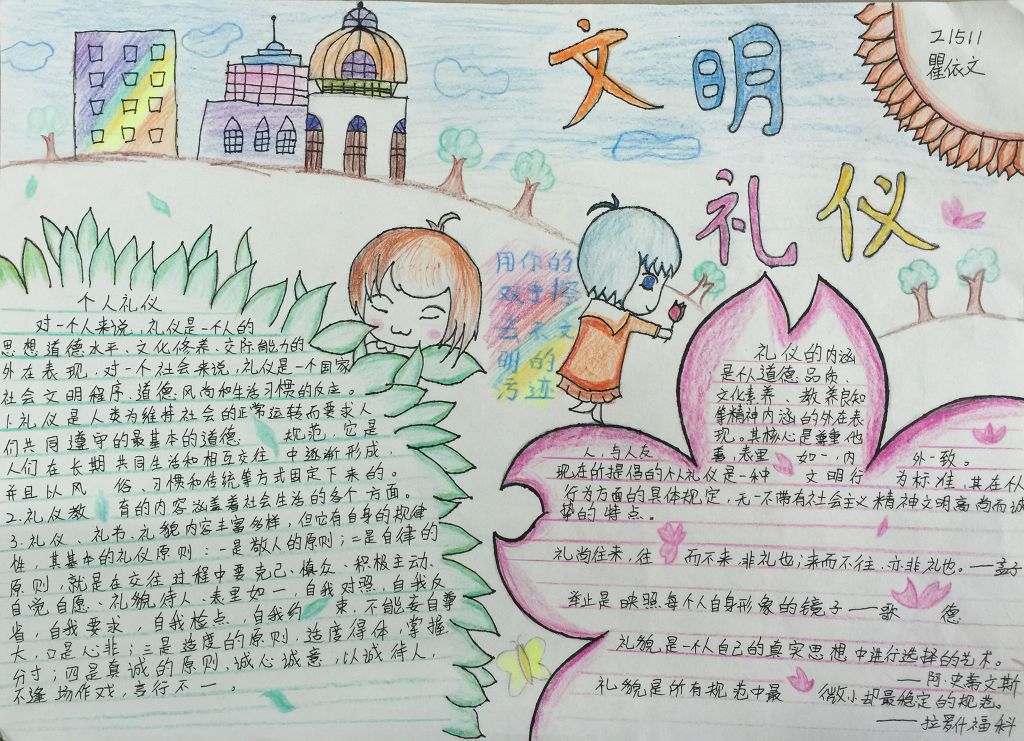 文明
礼仪
21511
瞿依文
用你的
双手擦
去不文
明的
污迹
个人礼仪
对一个人来说，礼仪是一个人的
思想道德水平、文化修养、交际能力的
外在表现，对一个社会来说，礼仪是一个国家
社会文明程序、道德风尚和生活习惯的反应。
1.礼仪是人类为维持社会的正常运转而要求人
们共同遵守的最基本的道德规范，它是
人们在长期共同生活和相互交往中逐渐形成，
并且以风俗、习惯和传统等方式固定下来的。
2.礼仪教育的内容涵盖着社会生活的各个方面。
3.礼仪、礼节、礼貌内容丰富多样，但它有自身的规律
性，其基本的礼仪原则：一是敬人的原则；二是自律的
原则，就是在交往过程中要克己、慎众、积极主动、
自觉自愿、礼貌待人、表里如一，自我对照，自我反
省，自我要求，自我检点，自我约束，不能妄自尊
大，口是心非；三是适度的原则，适度得体，掌握
分寸；四是真诚的原则，诚心诚意，以诚待人，
不逢场作戏，言行不一。
礼仪的内涵
是个人道德品质、
文化素养、教养良知
等精神内涵的外在表
现。其核心是尊重他
人，与人友善，表里如一，内外一致。
现在所提倡的个人礼仪是一种文明行为标准，其在个人
行为方面的具体规定，无一不带有社会主义精神文明高尚而诚
挚的特点。
礼尚往来，往而不来，非礼也；来而不往，亦非礼也。——孟子
举止是映照每个人自身形象的镜子——歌德
礼貌是一个人自己的真实思想中进行选择的艺术。
——阿·史蒂文斯
礼貌是所有规范中最微小却最稳定的规范。
——拉罗什福科